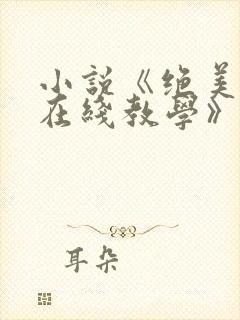 小說《絕美
在綫教學》
耳朵